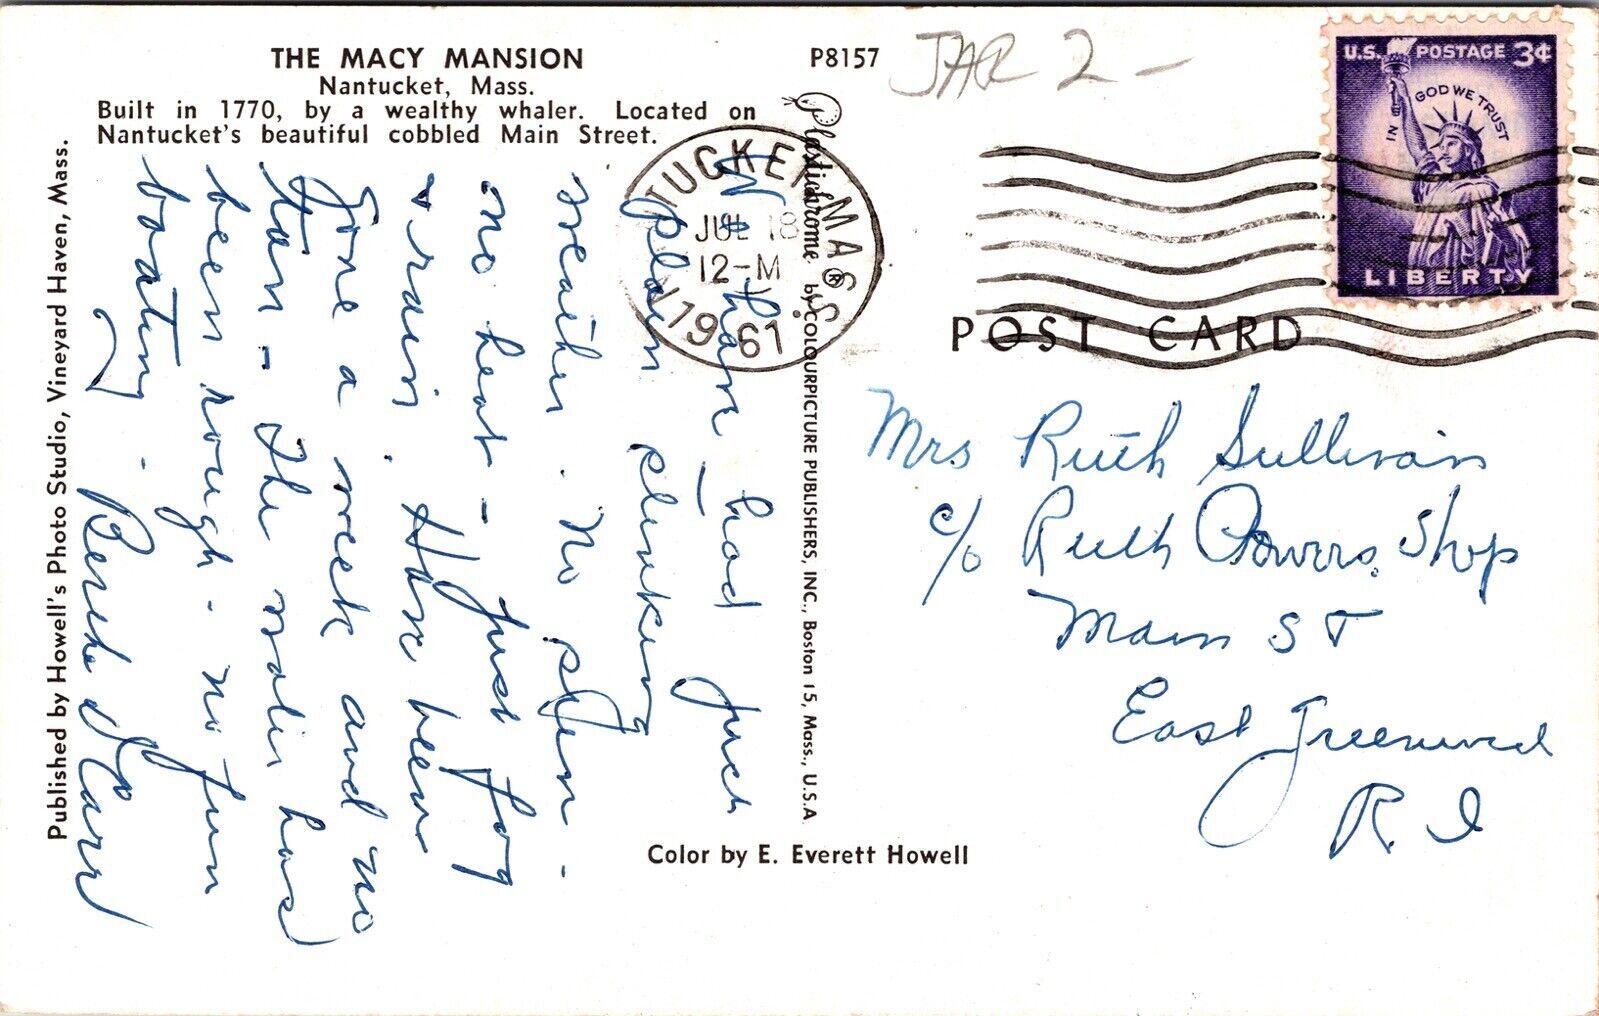 THE MACY MANSION
Nantucket, Mass.
Built in 1770, by a wealthy whaler. Located on
Nantucket's beautiful cobbled Main Street.
P8157
JAR 2 -
U.S. POSTAGE 3¢
IN GOD WE TRUST
LIBERTY
TUCKET MASS.
JUL 18
12-M
1961
POST CARD
We have had just
plain stinking
weather. No sun -
no heat - just fog
& rain. Have been
gone a week and no
tan - The water has
been rough - no fun
boating -
Carr
Mrs Ruth Sullivan
c/o Ruth Powers Shop
Main ST
East Greenwich
R. I
Published by Howell's Photo Studio, Vineyard Haven, Mass.
Plastichrome ® by COLOURPICTURE PUBLISHERS, INC., Boston 15, Mass., U.S.A.
Color by E. Everett Howell